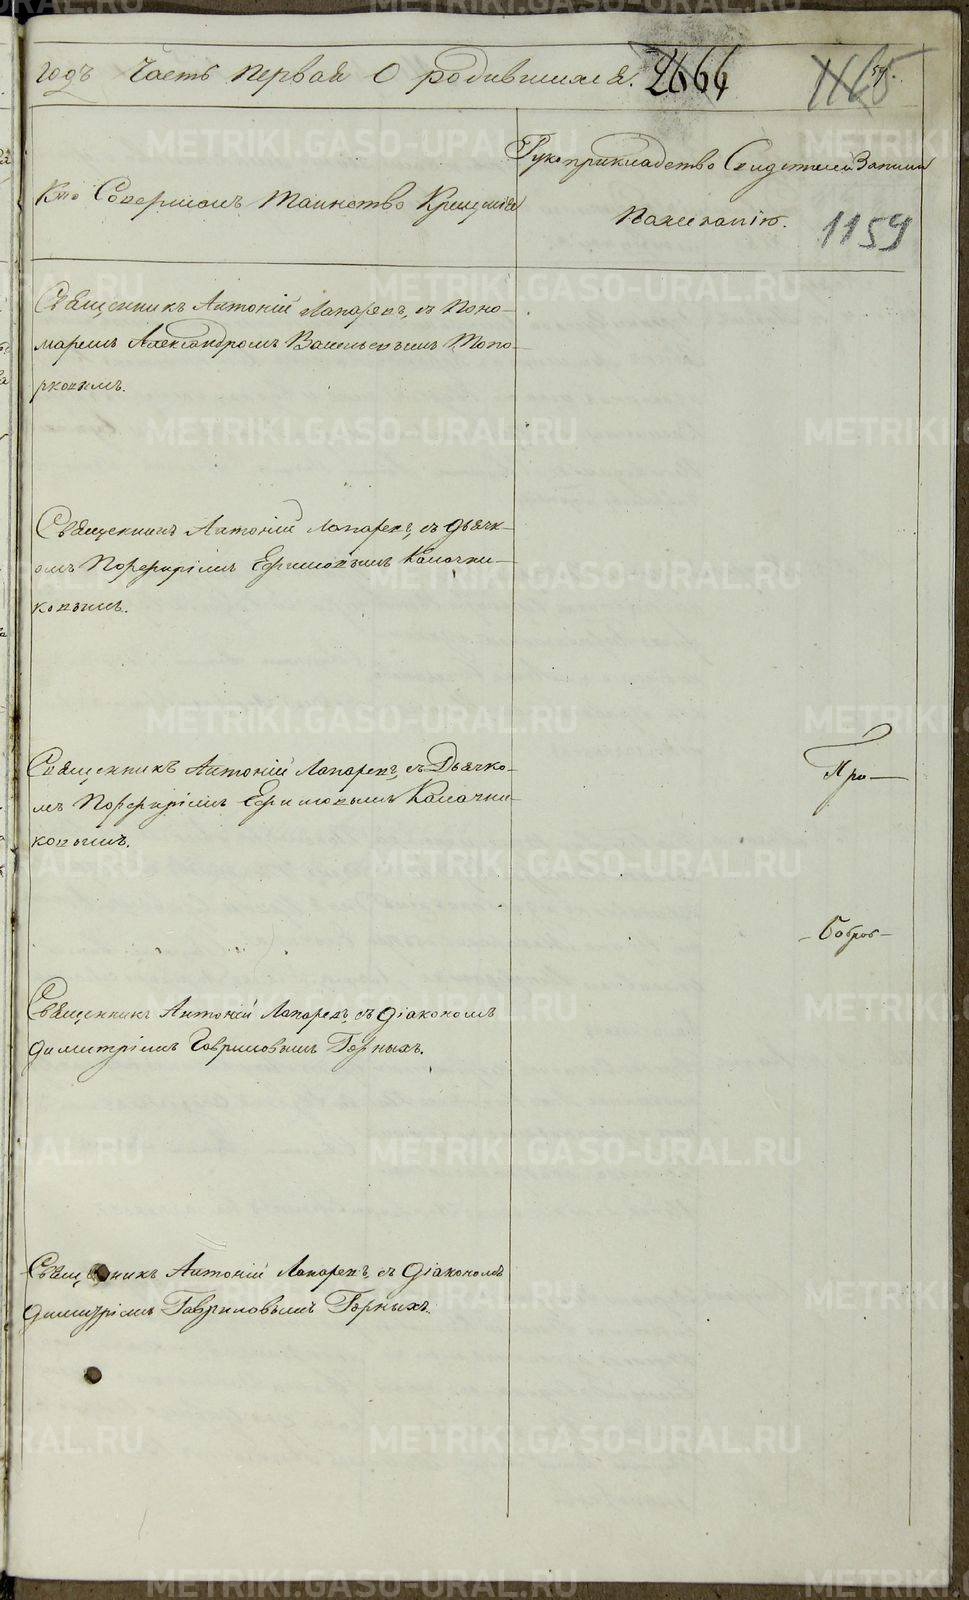 годъ Часть первая О родившихся. 2666 1165 59.
Кто Совершалъ Таинство Крещенія
Рукоприкладство Свидетелей Записи
По желанію.
1159
Священникъ Антоній Лапаревъ, съ Поно-
маремъ Александромъ Васильевымъ Топо-
рковымъ.
Священникъ Антоній Лапаревъ, съ дьячк-
омъ Порфиріемъ Ефимовымъ Калачни-
ковымъ.
Священникъ Антоній Лапаревъ, съ Дьячко-
мъ Порфиріемъ Ефимовымъ Калачни-
ковымъ.
Про-
-Бобров-
Священникъ Антоній Лапаревъ, съ діакономъ
Димитріемъ Гавриловымъ Горныхъ.
Священникъ Антоній Лапаревъ, съ Діакономъ
Димитріемъ Гавриловымъ Горныхъ.
METRIKI.GASO-URAL.RU